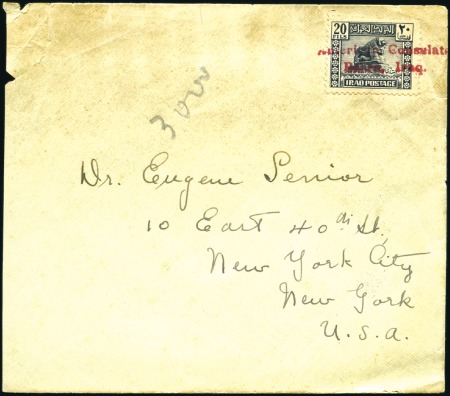 20 ٢٠
FILS
American Consulate
Basra, Iraq.
IRAQ POSTAGE
3000
Dr. Eugene Senior
10 East 40th St.
New York City
New York
U.S.A.